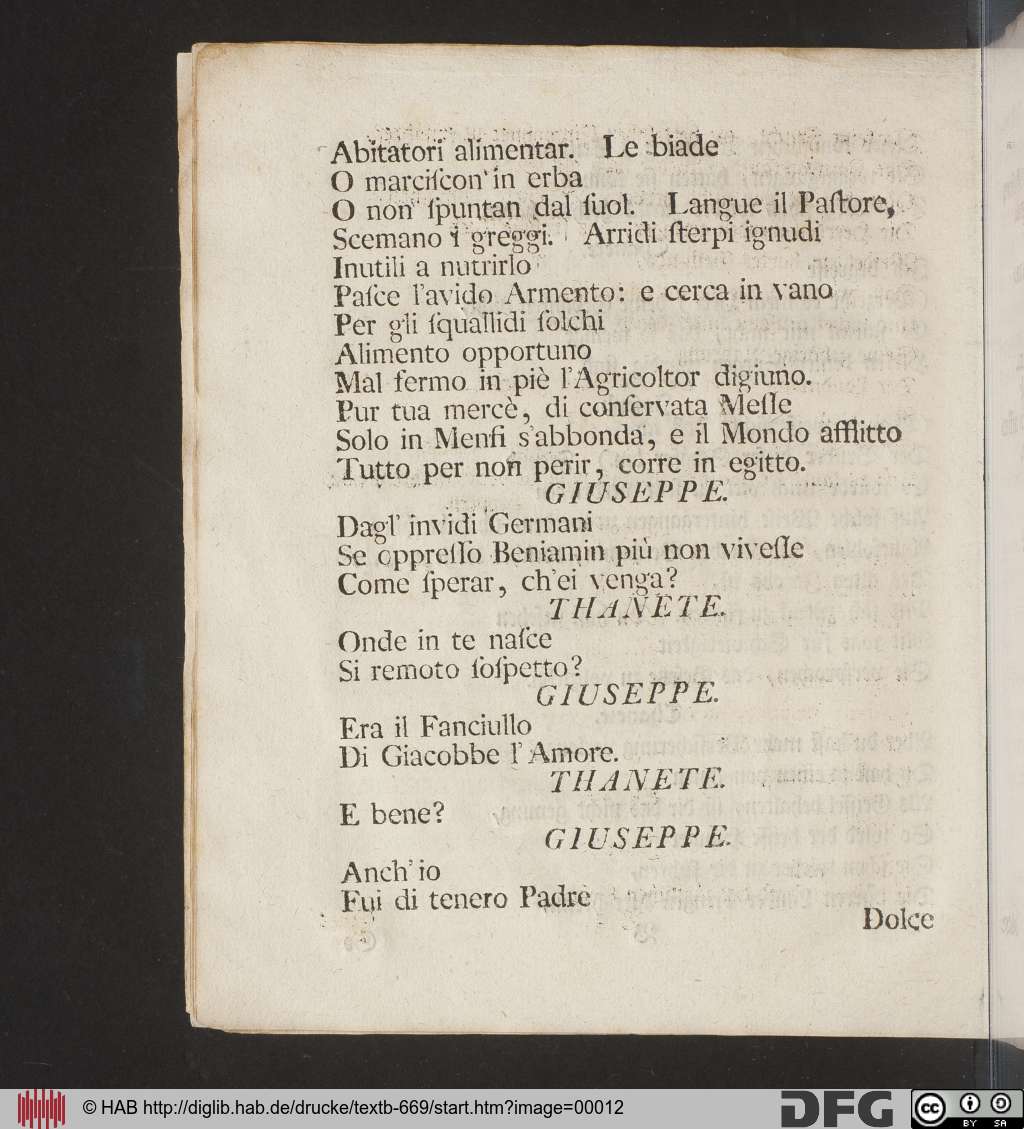 Abitatori alimentar. Le biade
O marciſcon' in erba
O non ſpuntan dal ſuol. Langue il Paſtore,
Scemano i greggi. Arridi ſterpi ignudi
Inutili a nutrirlo
Paſce l'avido Armento: e cerca in vano
Per gli ſquallidi ſolchi
Alimento opportuno
Mal fermo in piè l'Agricoltor digiuno.
Pur tua mercè, di conſervata Meſſe
Solo in Menfi s'abbonda, e il Mondo afflitto
Tutto per non perir, corre in egitto.
GIUSEPPE.
Dagl' invidi Germani
Se oppreſſo Beniamin più non viveſſe
Come ſperar, ch'ei venga?
THANETE.
Onde in te naſce
Si remoto ſoſpetto?
GIUSEPPE.
Era il Fanciullo
Di Giacobbe l'Amore.
THANETE.
E bene?
GIUSEPPE.
Anch' io
Fui di tenero Padre
Dolce
© HAB http://diglib.hab.de/drucke/textb-669/start.htm?image=00012
DFG
cc BY SA